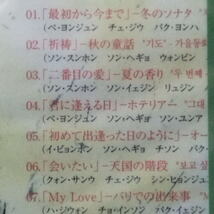 01.「最初から今まで」−冬のソナタ
(ペ・ヨンジュン チェ・ジウ パク・ソル
02.「祈祷」−秋の童話 "기도" 가을동화
(ソン・スンホン ソン・ヘギョ ウォンビン
03.「二番目の愛」−夏の香り "두 번째
(ソン・スンホン ソン・イェジン リュジン
04.「君に逢える日」−ホテリアー "그대
(ペ・ヨンジュン ソン・ユナ
05.「初めて出逢った日のように」−オー
(イ・ビョンホン ソン・ヘギョ チソン
06.「会いたい」−天国の階段 "보고싶
(クォン・サンウ チェ・ジウ シン・ヒョンジュ
07.「My Love」−バリでの出来事
(ハ・ジウォン チョ・インソン パク・イェ